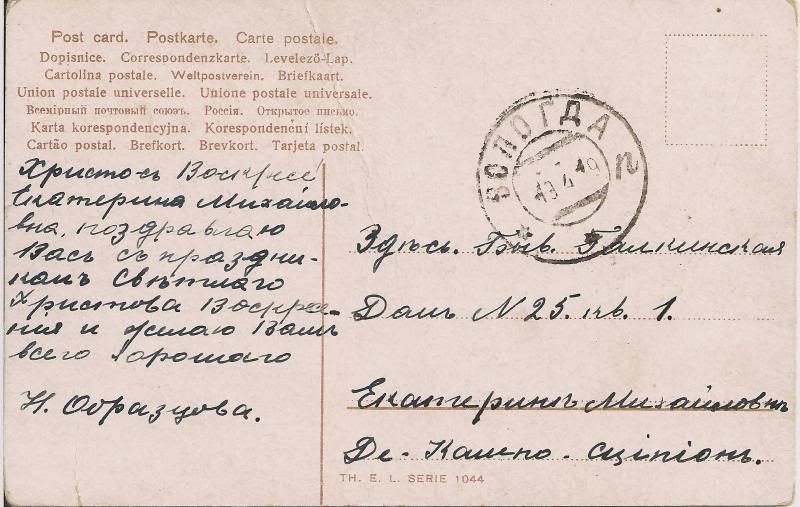 Post card. Postkarte. Carte postale.
Dopisnice. Correspondenzkarte. Levelező-Lap.
Cartolina postale. Weltpostverein. Briefkaart.
Union postale universelle. Unione postale universale.
Всемірный почтовый союзъ. Россія. Открытое письмо.
Karta korespondencyjna. Korespondenční lístek.
Cartão postal. Brefkort. Brevkort. Tarjeta postal.
Христосъ Воскресе
Екатерина Михайло-
вна, поздравляю
Васъ съ праздни-
комъ Свѣтлаго
Христова Воскре-
ния и желаю Вамъ
всего хорошаго
Н. Образцова.
ВОЛОГДА
19 4 19
п
Здѣсь. Быв. Галкинская
Домъ N 25. кв. 1.
Екатеринѣ Михайловнѣ
Де-Кампо-Сципіонъ.
TH. E. L. SERIE 1044